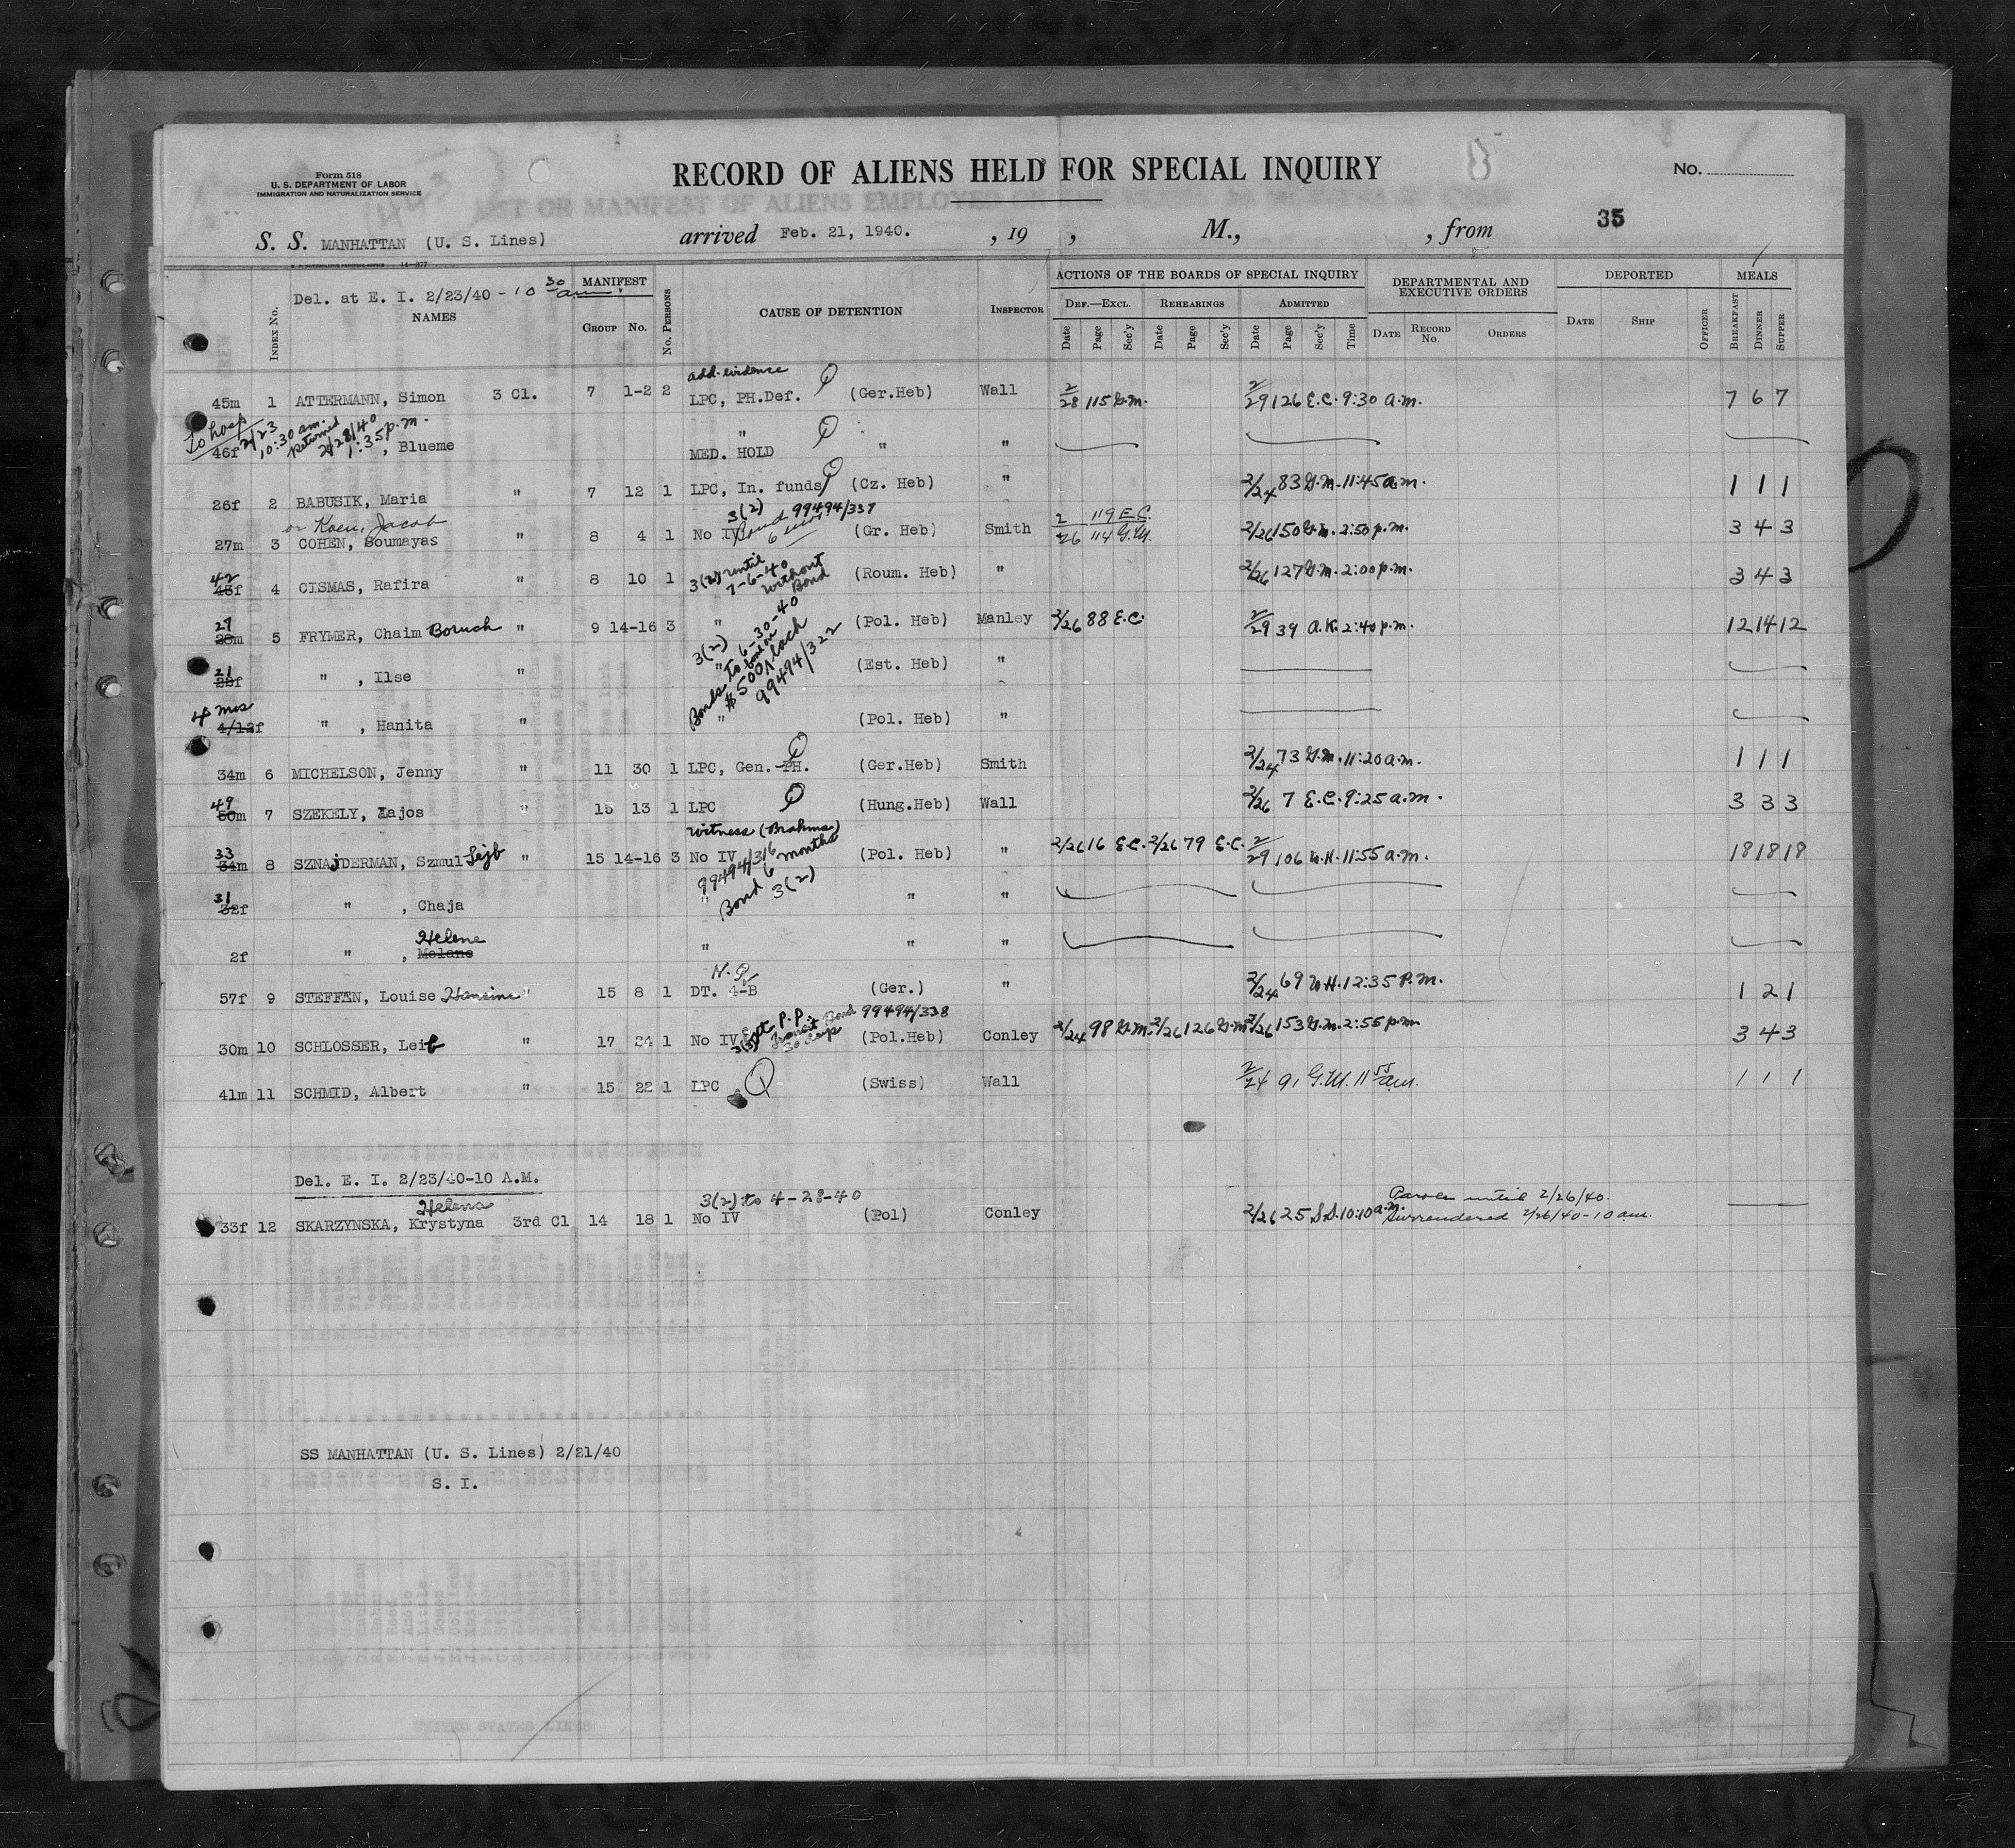 Form 518
U. S. DEPARTMENT OF LABOR
IMMIGRATION AND NATURALIZATION SERVICE
RECORD OF ALIENS HELD FOR SPECIAL INQUIRY
No.
35
S. S. MANHATTAN (U. S. Lines) arrived Feb. 21, 1940. , 19 , M., , from
Del. at E. I. 2/23/40 - 10 30 am.
INDEX No. NAMES MANIFEST GROUP No. No. PERSONS CAUSE OF DETENTION INSPECTOR
ACTIONS OF THE BOARDS OF SPECIAL INQUIRY DEPARTMENTAL AND EXECUTIVE ORDERS DEPORTED MEALS
DEF.—EXCL. REHEARINGS ADMITTED
Date Page Sec'y Date Page Sec'y Date Page Sec'y Time DATE RECORD No. ORDERS DATE SHIP OFFICER BREAKFAST DINNER SUPPER
add. evidence
45m 1 ATTERMANN, Simon 3 Cl. 7 1-2 2 LPC, PH.Def. (Ger.Heb) Wall 2/28 115 G.M. 2/29 126 E.C. 9:30 a.m. 7 6 7
To hosp 2/23 10:30 am. Returned 2/28/40 1:35 p.m.
46f , Blueme " MED. HOLD " "
26f 2 BABUSIK, Maria " 7 12 1 LPC, In. funds (Cz. Heb) " 2/24 83 G.M. 11:45 a.m. 1 1 1
or Koen, Jacob
3(2) Bond 99494/337 6 mos
27m 3 COHEN, Soumayas " 8 4 1 No IV (Gr. Heb) Smith 2/26 119 E.C. 114 G.M. 2/26 150 G.M. 2:50 p.m. 3 4 3
42 46f 4 CISMAS, Rafira " 8 10 1 3(2) until 7-6-40 without Bond (Roum. Heb) " 2/26 127 G.M. 2:00 p.m. 3 4 3
27 28m 5 FRYMER, Chaim Boruch " 9 14-16 3 " (Pol. Heb) Manley 2/26 88 E.C. 2/29 39 A.K. 2:40 p.m. 12 14 12
3(2) to 6-30-40
21 22f " , Ilse " " (Est. Heb) "
Bonds $500 each 99494/322
4 mos 4/12f " , Hanita " " (Pol. Heb) "
34m 6 MICHELSON, Jenny " 11 30 1 LPC, Gen. PH. (Ger.Heb) Smith 2/24 73 G.M. 11:20 a.m. 1 1 1
49 50m 7 SZEKELY, Lajos " 15 13 1 LPC (Hung.Heb) Wall 2/26 7 E.C. 9:25 a.m. 3 3 3
Witness (Brahms)
33 34m 8 SZNAJDERMAN, Szmul Lejb " 15 14-16 3 No IV (Pol. Heb) " 2/26 16 E.C. 2/26 79 E.C. 2/29 106 W.H. 11:55 a.m. 18 18 18
99494/316 Bond 6 months 3(2)
31 32f " , Chaja " " "
Helene
2f " , Melane " " "
N.Q.
57f 9 STEFFEN, Louise Hansine " 15 8 1 DT. 4-B (Ger.) " 2/24 69 W.H. 12:35 P.M. 1 2 1
P.P. Transit Bond 99494/338
30m 10 SCHLOSSER, Leib " 17 24 1 No IV 3(3) 30 days (Pol.Heb) Conley 2/24 98 G.M. 2/26 126 G.M. 2/26 153 G.M. 2:55 p.m. 3 4 3
41m 11 SCHMID, Albert " 15 22 1 LPC (Swiss) Wall 2/24 91 G.M. 11 55 am. 1 1 1
Del. E. I. 2/23/40-10 A.M.
Helena 3(2) to 4-28-40 Parole until 2/26/40.
33f 12 SKARZYNSKA, Krystyna 3rd Cl 14 18 1 No IV (Pol) Conley 2/26 25 S.S. 10:10 a.m. Surrendered 2/26/40-10 am.
SS MANHATTAN (U. S. Lines) 2/21/40
S. I.